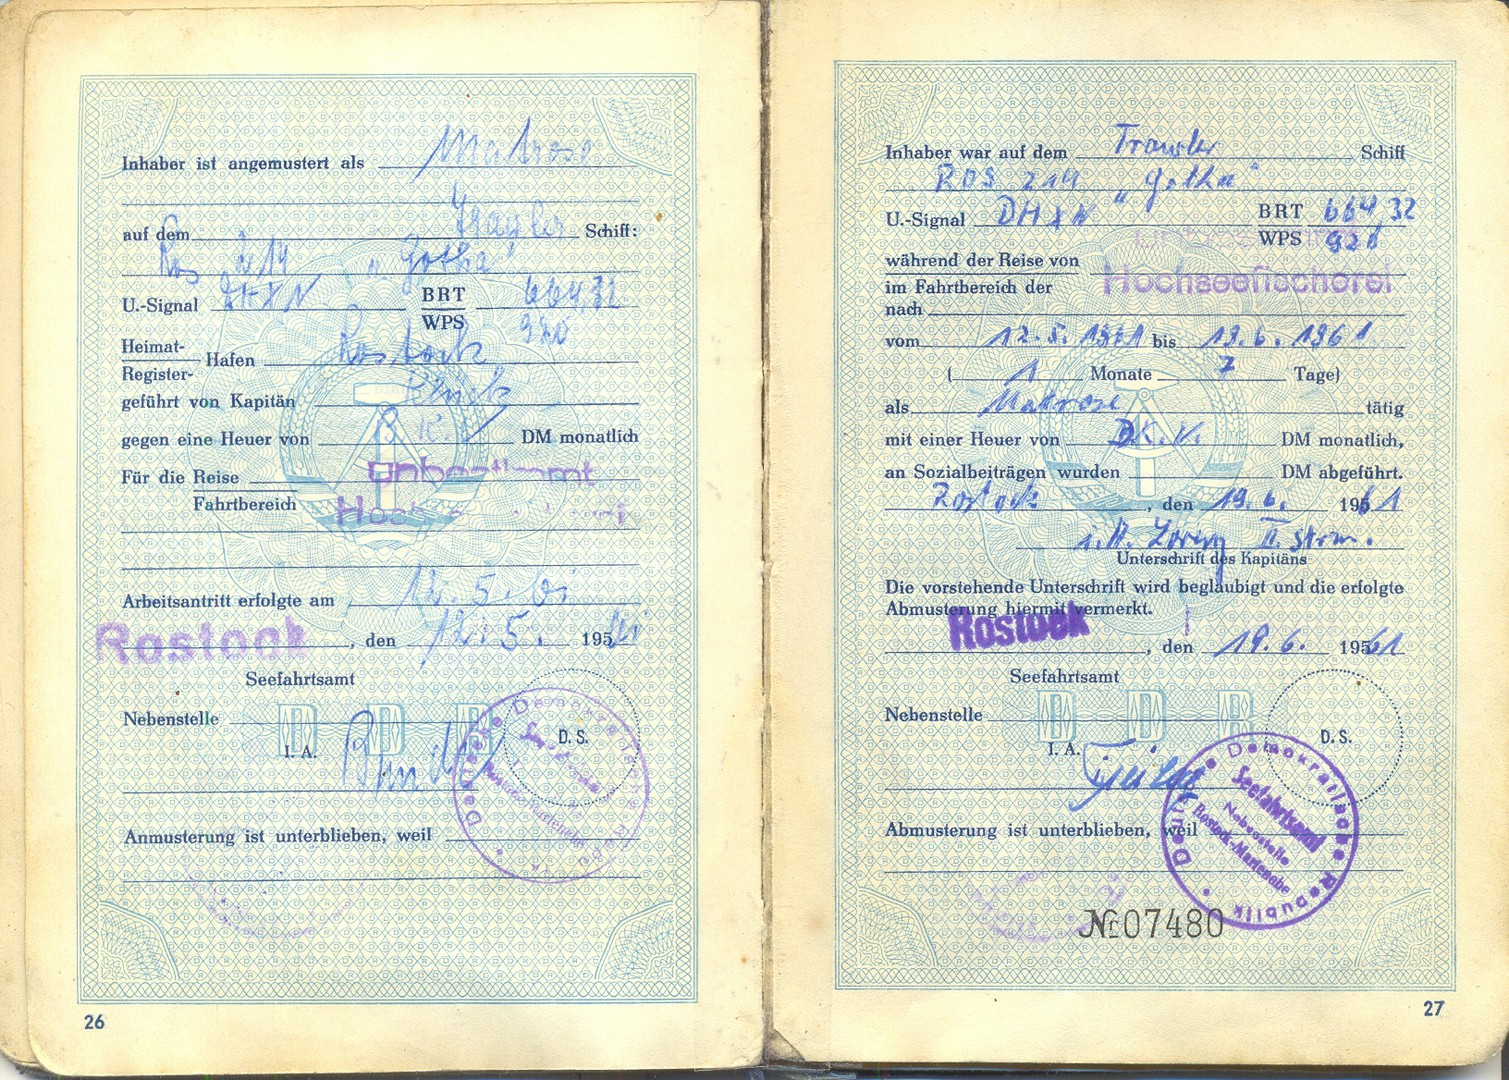 Inhaber ist angemustert als Matrose
auf dem Schiff:
Ros 214 "Gotha"
U.-Signal DHXN BRT 664,32
WPS 920
Heimat-
Register- Hafen Rostock
geführt von Kapitän
gegen eine Heuer von DM monatlich
Für die Reise unbestimmt
Fahrtbereich
Arbeitsantritt erfolgte am 12.5.61
Rostock, den 12.5. 1961
Seefahrtsamt
Nebenstelle
I. A.
D. S.
Deutsche Demokratische Republik
Anmusterung ist unterblieben, weil
26
Inhaber war auf dem Trawler Schiff
ROS 214 "Gotha"
U.-Signal DHXN BRT 664,32
WPS 920
während der Reise von unbestimmt
im Fahrtbereich der Hochseefischerei
nach
vom 12.5.1961 bis 19.6.1961
( 1 Monate 7 Tage)
als Matrose tätig
mit einer Heuer von DM monatlich,
an Sozialbeiträgen wurden DM abgeführt.
Rostock, den 19.6. 1961
Unterschrift des Kapitäns
Die vorstehende Unterschrift wird beglaubigt und die erfolgte
Abmusterung hiermit vermerkt.
Rostock, den 19.6. 1961
Seefahrtsamt
Nebenstelle
I. A.
D. S.
Deutsche Demokratische Republik
Seefahrtsamt
Nebenstelle
Rostock-Marienehe
Abmusterung ist unterblieben, weil
№ 07480
27